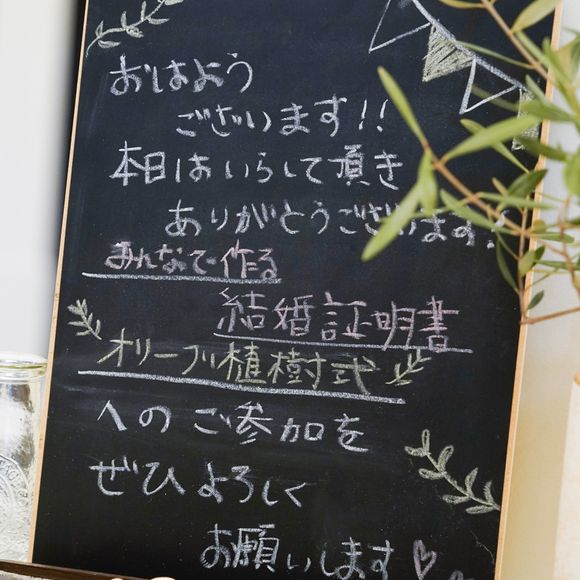 おはよう
ございます!!
本日はいらして頂き
ありがとうございます!!
みんなで作る
結婚証明書
オリーブ植樹式
へのご参加を
ぜひよろしく
お願いします♡